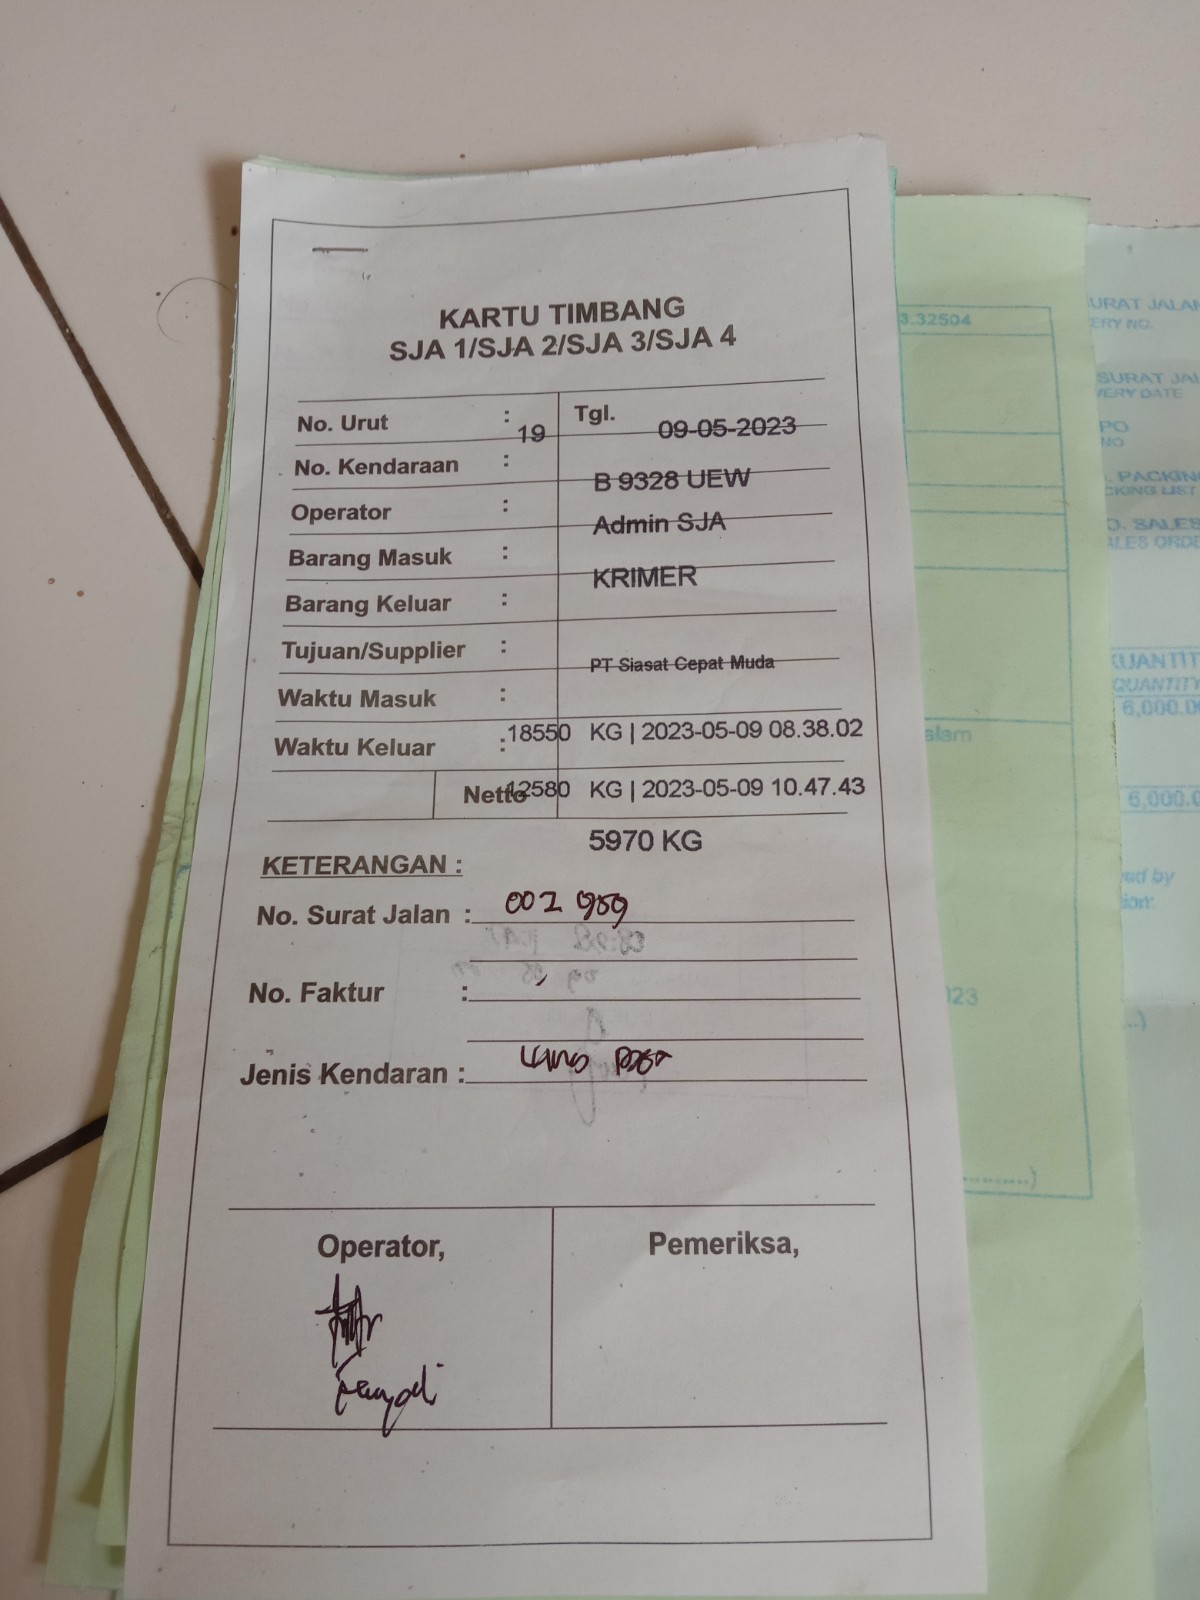 KARTU TIMBANG
SJA 1/SJA 2/SJA 3/SJA 4
No. Urut : 19 Tgl. 09-05-2023
No. Kendaraan : B 9328 UEW
Operator : Admin SJA
Barang Masuk : KRIMER
Barang Keluar :
Tujuan/Supplier : PT Siasat Cepat Muda
Waktu Masuk : 18550 KG | 2023-05-09 08.38.02
Waktu Keluar : 12580 KG | 2023-05-09 10.47.43
Netto 5970 KG
KETERANGAN :
No. Surat Jalan : 002
No. Faktur :
Jenis Kendaran :
Operator, Pemeriksa,
3.32504
alam
023
URAT JALAN
ERY NO.
SURAT JAL
VERY DATE
PO
NO
. PACKING
CKING LIST
O. SALES
ALES ORDE
KUANTIT
QUANTITY
6,000.0
6,000.0
ed by